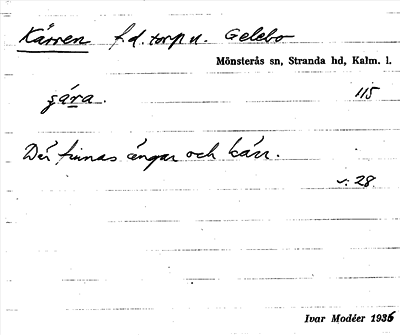 Kärren f.d. torp u. Gelebo
Mönsterås sn, Stranda hd, Kalm. l.
115
Där finnas ängar och kärr.
28
Ivar Modéer 1936